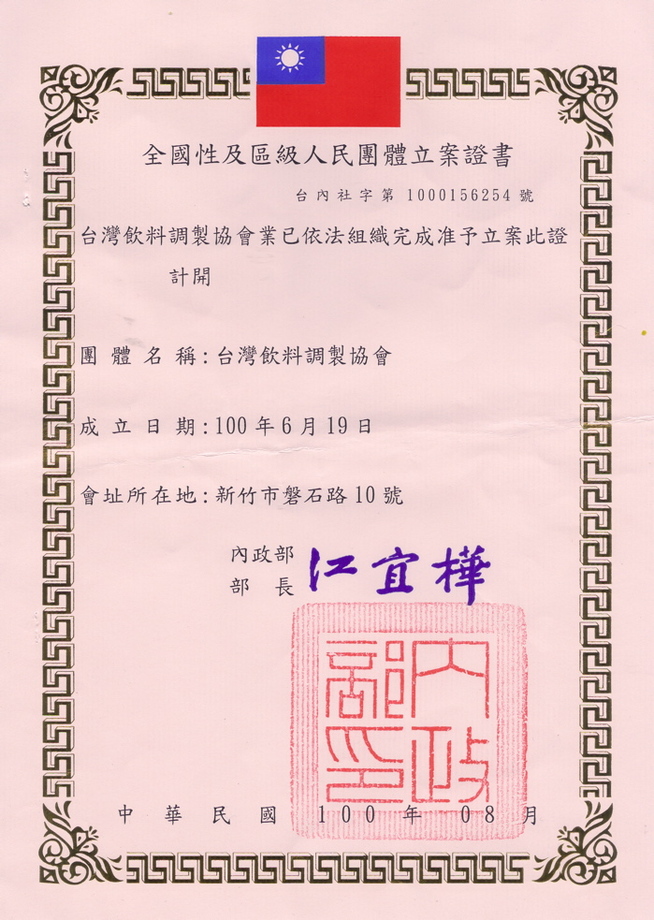 全國性及區級人民團體立案證書
台內社字第 1000156254 號
台灣飲料調製協會業已依法組織完成准予立案此證
計開
團體名稱:台灣飲料調製協會
成立日期:100年6月19日
會址所在地:新竹市磐石路10號
內政部
部長 江宜樺
內政部印
中華民國 100 年 08 月